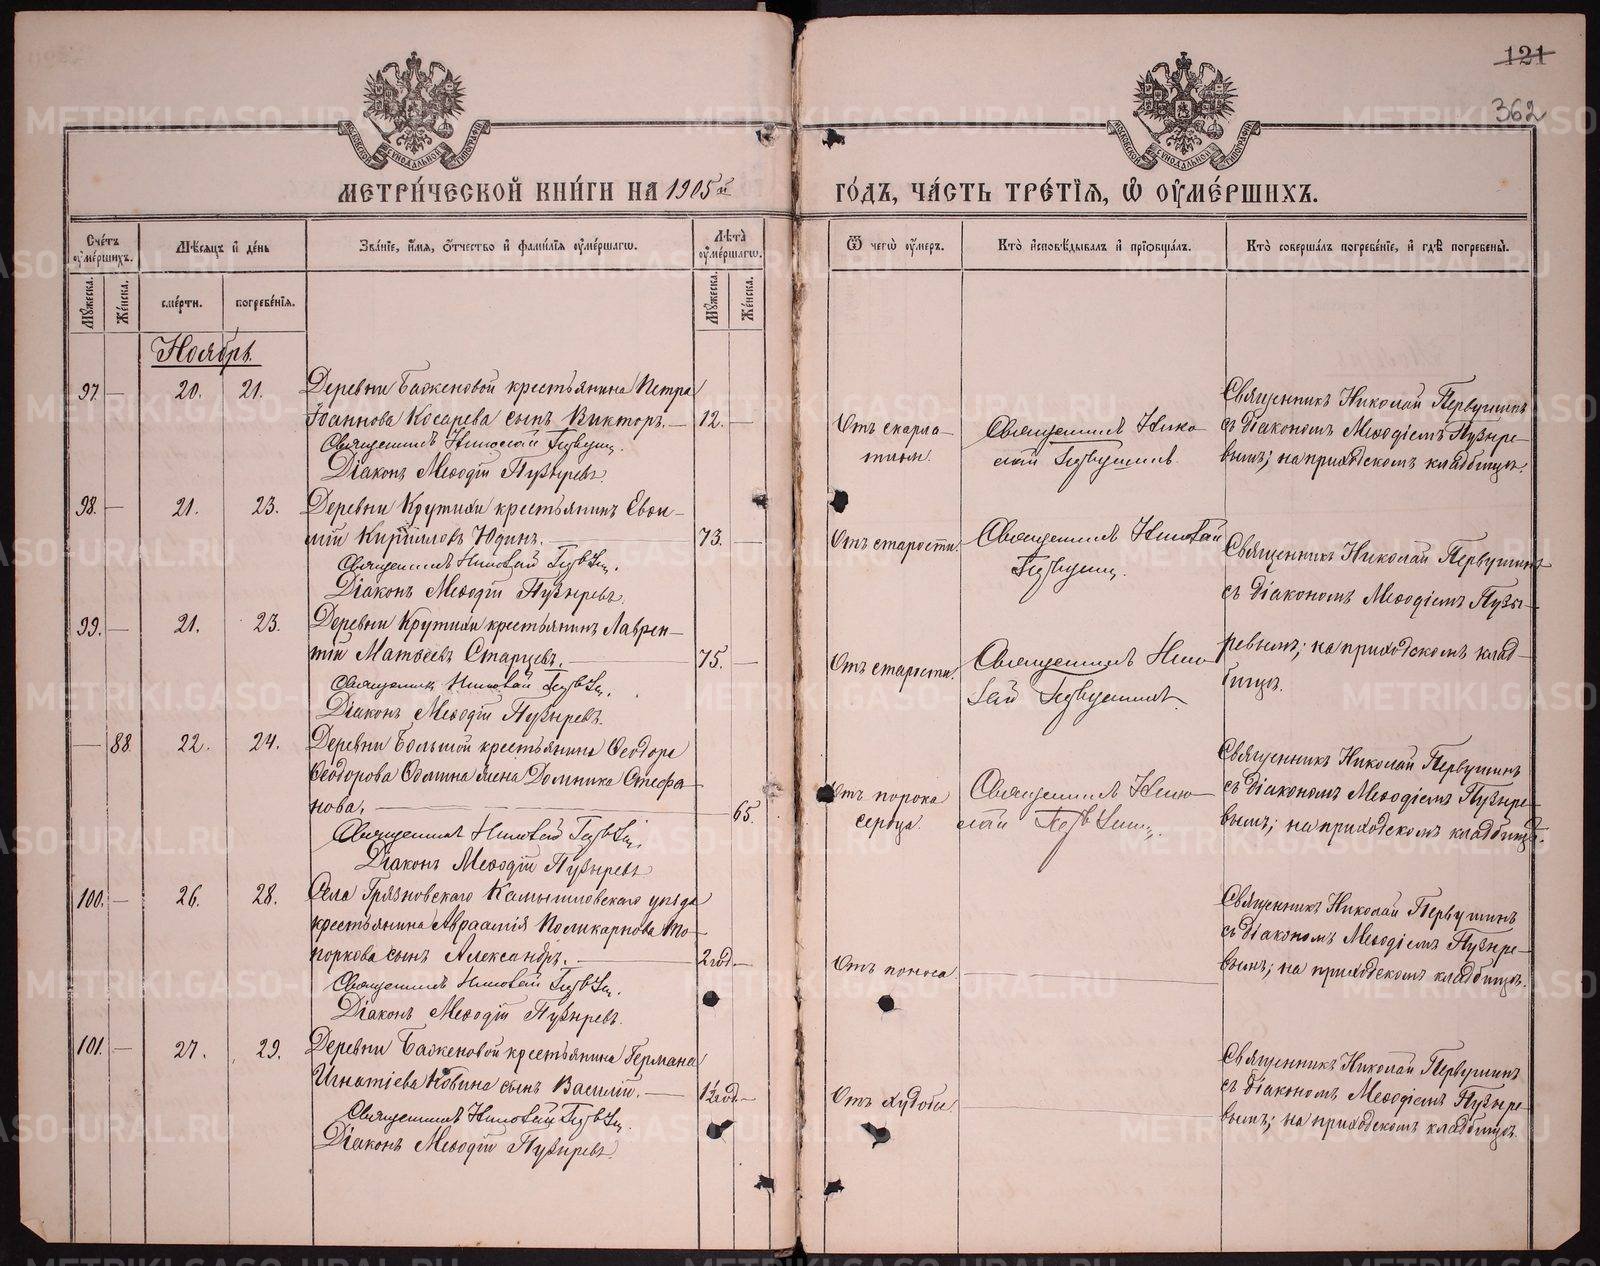 121
362
МОСКОВСКОЙ СѴНОДАЛЬНОЙ ТИПОГРАФІИ
МОСКОВСКОЙ СѴНОДАЛЬНОЙ ТИПОГРАФІИ
МЕТРИ́ЧЕСКОЙ КНИ́ГИ НА 1905й
ГО́ДЪ, ЧА́СТЬ ТРЕ́ТІЯ, Ѡ҆ ОУ҆МЕ́РШИХЪ.
Сче́тъ оу҆ме́ршихъ.
Мѣ́сяцъ и҆ де́нь
Зва́ніе, и҆́мя, ѻ҆́тчество и҆ фами́лія оу҆ме́ршагѡ.
Лѣ́та оу҆ме́ршагѡ.
Ѿ чегѡ̀ оу҆́меръ.
Кто̀ и҆сповѣ́дывалъ и҆ прїѡбща́лъ.
Кто̀ соверша́лъ погребе́ніе, и҆ гдѣ̀ погребены̀.
Мꙋ́жеска.
Же́нска.
сме́рти.
погребе́нія.
Мꙋ́жеска.
Же́нска.
Ноябрь.
97. — 20. 21. Деревни Баженовой крестьянина Петра
Іоаннова Косарева сынъ Викторъ. — 12. —
Священникъ Николай Первуш.
Діаконъ Меѳодій Пузыревъ.
Отъ скарла-
тины.
Священникъ Нико-
лай Первушинъ
Священникъ Николай Первушинъ
съ діакономъ Меѳодіемъ Пузыре-
вымъ; на приходскомъ кладбищѣ.
98. — 21. 23. Деревни Крутихи крестьянинъ Евѳи-
мій Кирилловъ Юдинъ. — 73. —
Священникъ Николай Первуш.
Діаконъ Меѳодій Пузыревъ.
Отъ старости.
Священникъ Николай
Первуш.
Священникъ Николай Первушинъ
съ діакономъ Меѳодіемъ Пузы-
ревымъ; на приходскомъ клад-
бищѣ.
99. — 21. 23. Деревни Крутихи крестьянинъ Лаврен-
тій Матѳеевъ Старцевъ. — 75. —
Священникъ Николай Первуш.
Діаконъ Меѳодій Пузыревъ.
Отъ старости.
Священникъ Нико-
лай Первушинъ
— 88. 22. 24. Деревни Большой крестьянина Ѳеодора
Ѳеодорова Ѳомина жена Домника Стефа-
нова. — 65.
Священникъ Николай Первуш.
Діаконъ Меѳодій Пузыревъ
Отъ порока
сердца.
Священникъ Нико-
лай Первушин.
Священникъ Николай Первушинъ
съ діакономъ Меѳодіемъ Пузыре-
вымъ; на приходскомъ кладбищѣ.
100. — 26. 28. Села Грязновскаго Камышловскаго уѣзда
крестьянина Авраамія Поликарпова То-
поркова сынъ Александръ. — 2 год. —
Священникъ Николай Первуш.
Діаконъ Меѳодій Пузыревъ.
Отъ поноса
Священникъ Николай Первушинъ
съ діакономъ Меѳодіемъ Пузыре-
вымъ; на приходскомъ кладбищѣ.
101. — 27. 29. Деревни Баженовой крестьянина Германа
Игнатіева Кобина сынъ Василій. — 1½ год. —
Священникъ Николай Первуш.
Діаконъ Меѳодій Пузыревъ.
Отъ худобы.
Священникъ Николай Первушинъ
съ діакономъ Меѳодіемъ Пузыре-
вымъ; на приходскомъ кладбищѣ.
METRIKI.GASO-URAL.RU